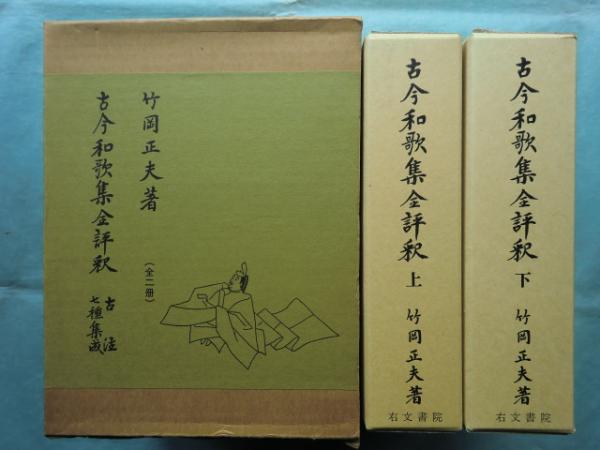 竹岡正夫著
古今和歌集全評釈
古注
七種集成
(全二册)
古今和歌集全評釈 上 竹岡正夫著
右文書院
古今和歌集全評釈 下 竹岡正夫著
右文書院